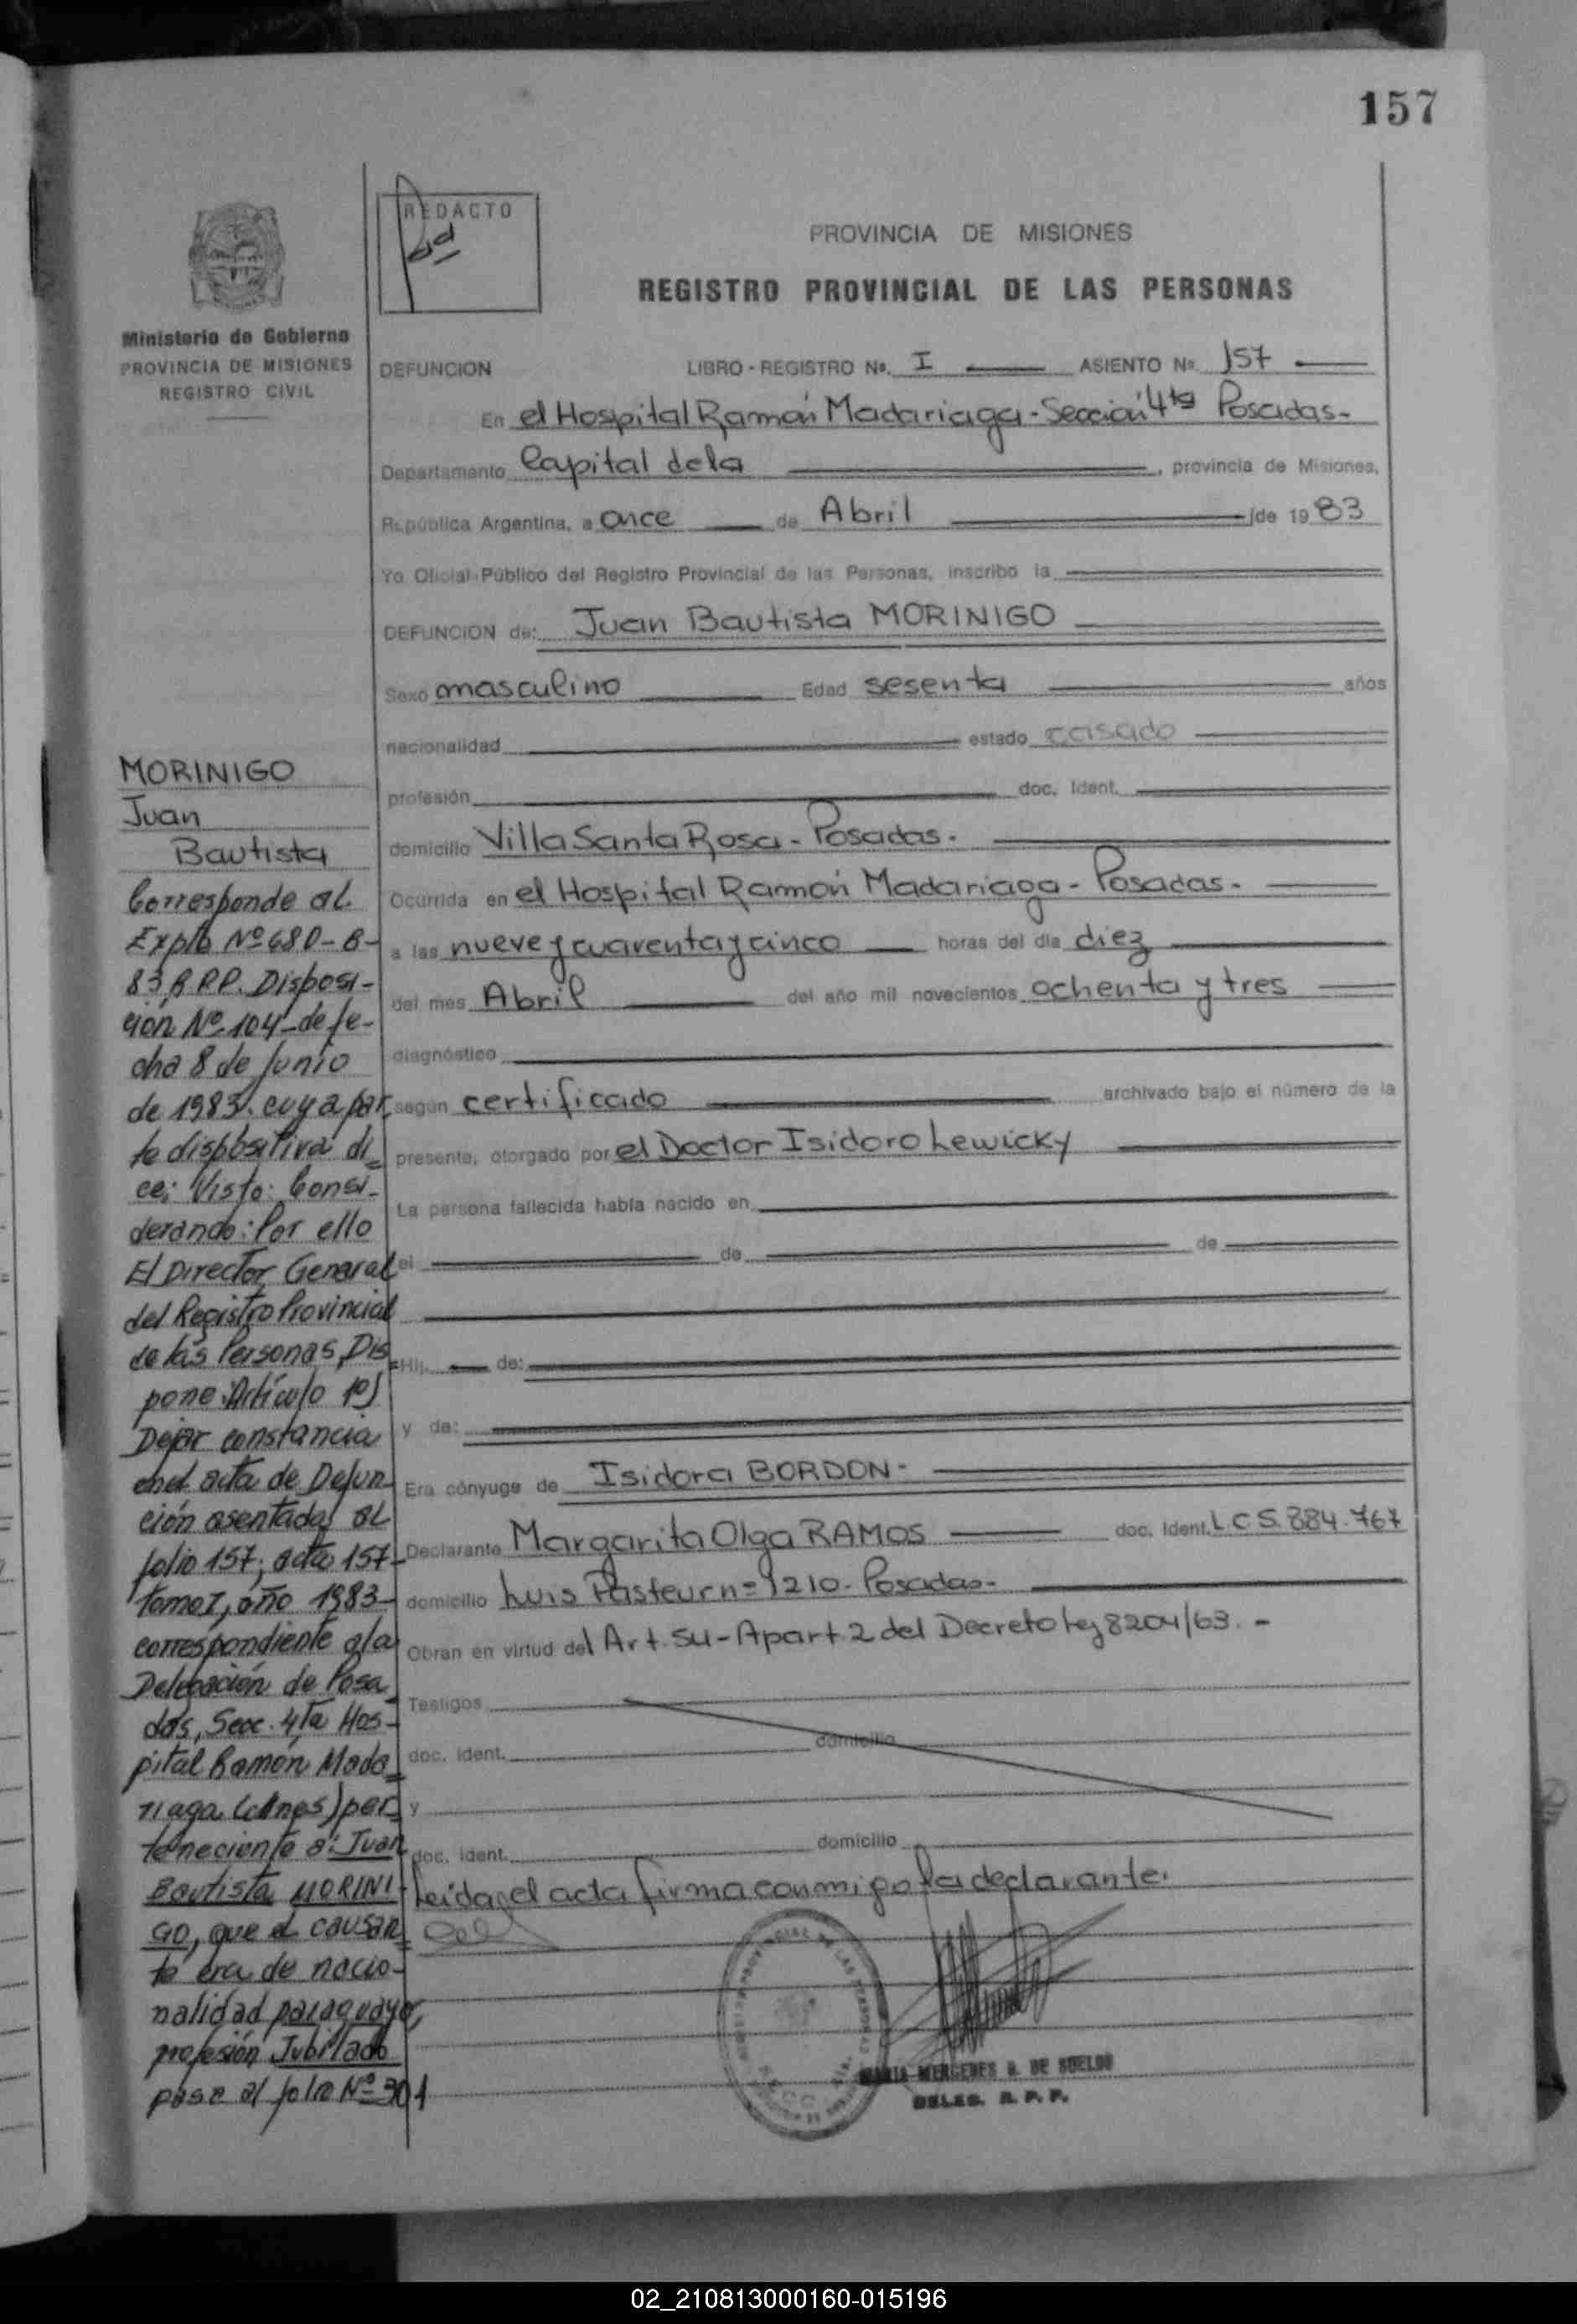 157
REDACTO
PROVINCIA DE MISIONES
REGISTRO PROVINCIAL DE LAS PERSONAS
Ministerio de Gobierno
PROVINCIA DE MISIONES
REGISTRO CIVIL
DEFUNCION LIBRO - REGISTRO Nº. I ASIENTO Nº 157
En el Hospital Ramón Madariaga - Sección 4ta Posadas-
Departamento Capital de la , provincia de Misiones,
República Argentina, a once de Abril de 1983
Yo Oficial Público del Registro Provincial de las Personas, inscribo la
DEFUNCION de: Juan Bautista MORINIGO
Sexo masculino Edad sesenta años
nacionalidad estado casado
profesión doc. Ident.
domicilio Villa Santa Rosa - Posadas.
Ocurrida en el Hospital Ramón Madariaga - Posadas.
a las nueve y cuarenta y cinco horas del día diez
del mes Abril del año mil novecientos ochenta y tres
diagnóstico
según certificado archivado bajo el número de la
presente, otorgado por el Doctor Isidoro Lewicky
La persona fallecida había nacido en
el de de
Hij de:
y de:
Era cónyuge de Isidora BORDON-
Declarante Margarita Olga RAMOS doc. Ident. L.C 5.884.767
domicilio Luis Pasteur nº 1210- Posadas-
Obran en virtud del Art. 54 - Apart 2 del Decreto Ley 8204/63. -
Testigos
doc. Ident. domicilio
y
doc. Ident. domicilio
Leida el acta firma conmigo la declarante.
MARIA MERCEDES G. DE SUELDO
DELEG. R. P. P.
MORINIGO
Juan
Bautista
Corresponde al
Expte Nº 680-B-
83 R.P.P. Disposi-
ción Nº 104- de fe-
cha 8 de Junio
de 1983. cuya par
te dispositiva di=
ce: Visto: Consi-
derando: Por ello
El Director General
del Registro Provincial
de las Personas, Dis=
pone: Artículo 1º)
Dejar constancia
en el acta de Defun-
ción asentada al
folio 157, acta 157-
tomo I, año 1983-
correspondiente a la
Delegación de Posa-
das, Secc. 4ta Hos-
pital Ramón Mada=
riaga (Mnes) per=
teneciente a: Juan
Bautista MORINI-
GO, que el causan=
te era de nacio-
nalidad paraguaya,
profesión Jubilado
pase al folio Nº 301
02_210813000160-015196